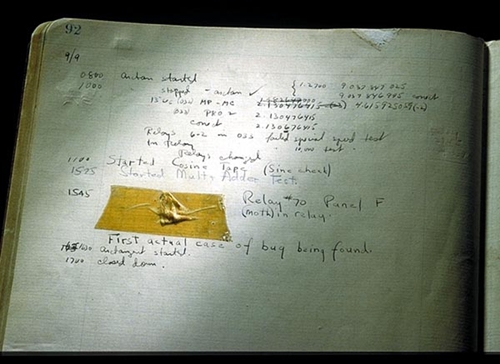 92
9/9
0800 Antan started
1000 stopped - antan ✓ { 1.2700 9.037 847 025
9.037 846 995 const
13"UC (032) MP-MC 4.615925059(-2)
033 PRO 2 2.130476415
const 2.130676415
Relays 6-2 in 033 failed special speed test
in relay " 10.000 test .
Relays changed
1100 Started Cosine Tape (Sine check)
1525 Started Mult+ Adder Test.
1545 Relay #70 Panel F
(moth) in relay.
First actual case of bug being found.
1630 antangent started.
1700 closed down.